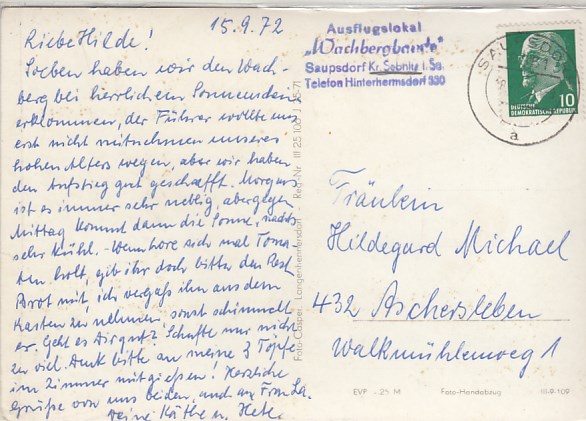 15.9.72
Liebe Hilde!
Soeben haben wir den Wach-
berg bei herrlichem Sonnenschein
erklommen, der Führer wollte uns
erst nicht mitnehmen unseres
hohen Alters wegen, aber wir haben
den Aufstieg gut geschafft. Morgens
ist es immer sehr neblig, aber gegen
Mittag kommt dann die Sonne, nachts
sehr kühl. - Wenn Jore sich mal Toma-
ten holt, gib ihr doch bitte den Rest
Brot mit, ich vergaß ihn aus dem
Kasten zu nehmen, sonst schimmelt
er. Geht es Dir gut? Schufte nur nicht
zu viel. Denk bitte an meine 3 Töpfe
im Zimmer mit gießen! Herzliche
Grüße von uns beiden, auch an Frau La.
Deine Käthe u. Hete.
Foto-Casper, Langenhermersdorf - Reg.-Nr. III 25 100 25-71
Ausflugslokal
„Wachbergbaude"
Saupsdorf Kr. Sebnitz i. Sa.
Telefon Hinterhermsdorf 330
a
10
DEUTSCHE
DEMOKRATISCHE REPUBLIK
Fräulein
Hildegard Michael
432 Aschersleben
Walkmühlenweg 1
EVP -.25 M Foto-Handabzug